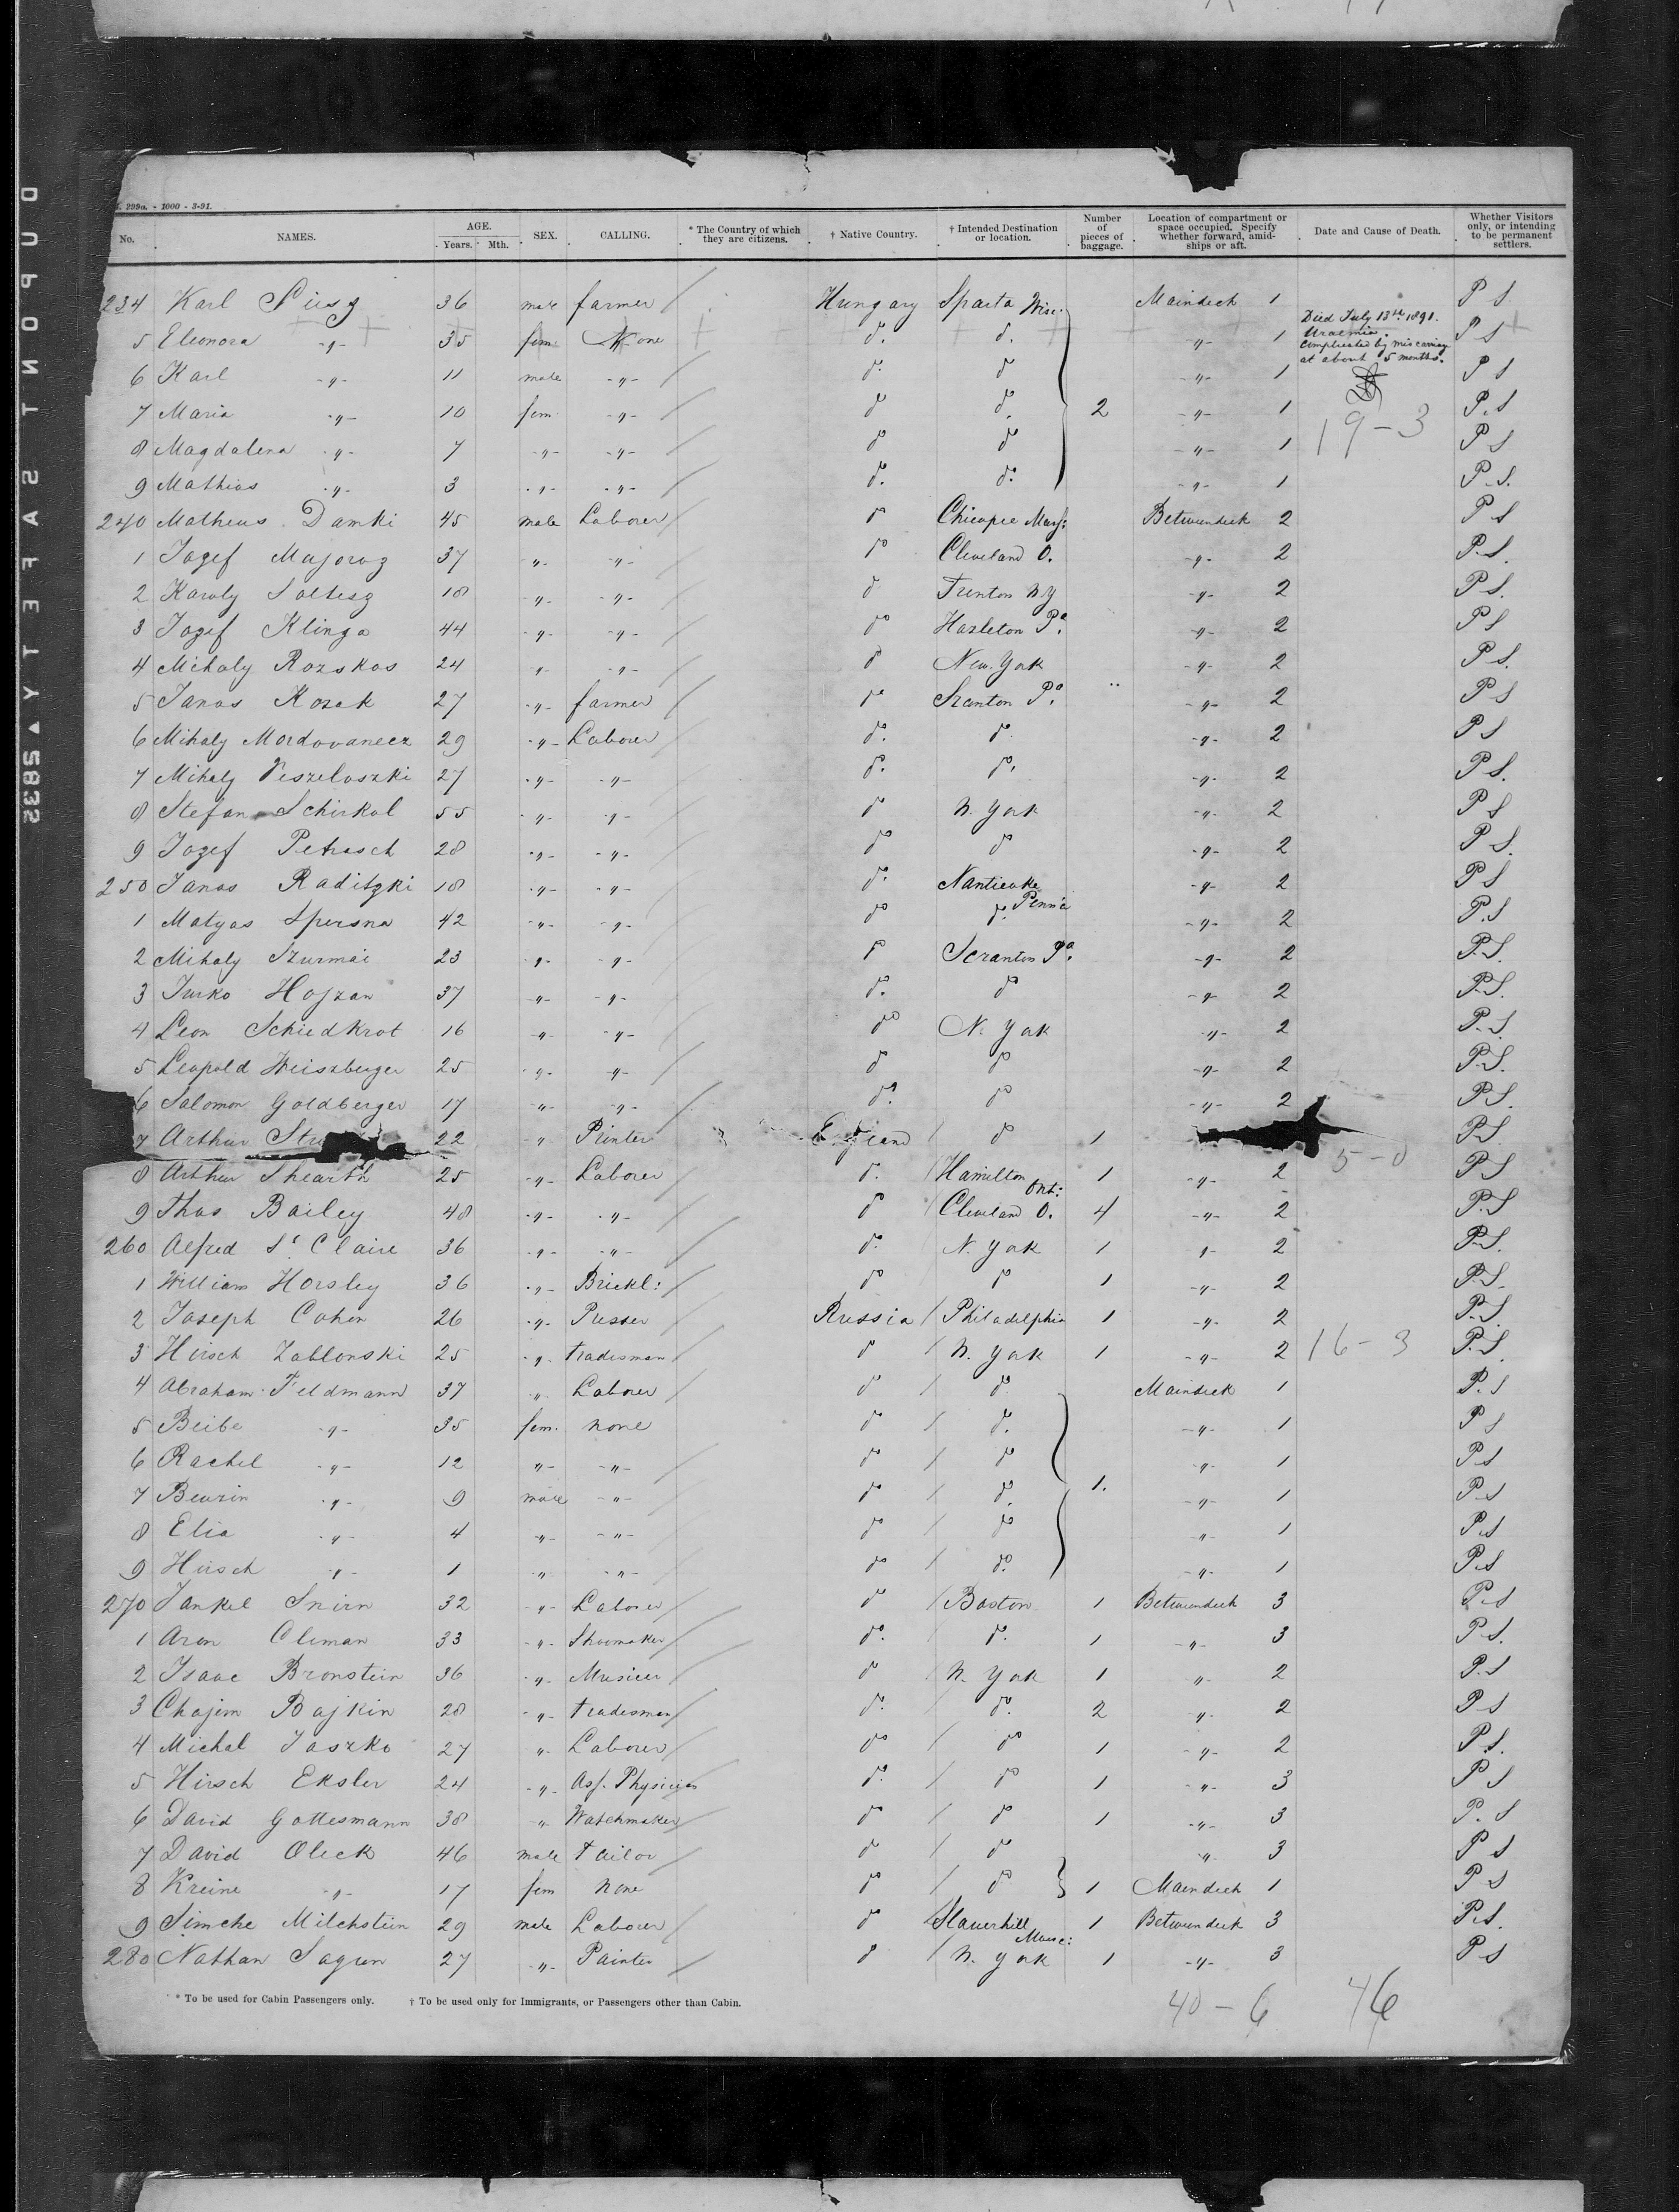 DUPONT SAFETY ▲ 5832
299a. - 1000 - 3-91.
No. NAMES. AGE. Years. Mth. SEX. CALLING. * The Country of which they are citizens. † Native Country. † Intended Destination or location. Number of pieces of baggage. Location of compartment or space occupied. Specify whether forward, amidships or aft. Date and Cause of Death. Whether Visitors only, or intending to be permanent settlers.
234 Karl 36 male farmer / Hungary Sparta Wisc. Maindeck 1 P S
5 Eleonora -„- 35 fem None do. do. -„- 1 Died July 13th 1891. Uraemia. Complicated by miscarriag at about 5 months. P S
6 Karl -„- 11 male -„- / do. do -„- 1 P S
7 Maria -„- 10 fem -„- / do do. 2 -„- 1 19-3 P.S
8 Magdalena -„- 7 -„- -„- / do do -„- 1 P S
9 Mathias -„- 3 -„- -„- / do. do. -„- 1 P.S.
240 Matheus Danki 45 male Laborer / do Chicopee Mass: Betweendeck 2 P S
1 Jozef Majoroz 37 -„- -„- / do Cleveland O. -„- 2 P.S.
2 Karoly Soltesz 18 -„- -„- / do Trenton N.Y -„- 2 P S.
3 Jozef Klinga 44 -„- -„- / do Hazleton Pa. -„- 2 P S
4 Mihaly Rozskos 24 -„- -„- / do New. York -„- 2 P S.
5 Janos Kozak 27 -„- farmer / do Sranton Pa. -„- 2 P S
6 Mihaly Mordovanecz 29 -„- Laborer / do. do. -„- 2 P S
7 Mihaly Veszeloszki 27 -„- -„- / do. do. -„- 2 P S.
8 Stefan Schirkal 55 -„- -„- / do N. York -„- 2 P S
9 Jozef Petrasch 28 -„- -„- / do do -„- 2 P S.
250 Janos Raditzki 18 -„- -„- / do. Nanticoke Penn'a -„- 2 P S
1 Matyas Spersna 42 -„- -„- / do do. -„- 2 P.S
2 Mihaly Szurmai 23 -„- -„- / do Scranton Pa. -„- 2 P.S.
3 Jurko Hojzan 37 -„- -„- / do. do -„- 2 P.S.
4 Leon Schiedkrot 16 -„- -„- / do N. York -„- 2 P.S.
5 Leopold Weiszberger 25 -„- -„- / do do -„- 2 P.S.
6 Salomon Goldberger 17 -„- -„- / do. do -„- 2 P S.
7 Arthur 22 -„- Printer England / do 1 P.S
8 Arthur Shearth 25 -„- Laborer / do. / Hamilton Ont: 1 -„- 2 5-0 P S
9 Thos Bailey 48 -„- -„- / do / Cleveland O. 4 -„- 2 P.S
260 Alfred St Claire 36 -„- -„- / do. N. York 1 -„- 2 P.S.
1 William Horsley 36 -„- Brickl: / do do 1 -„- 2 P.S.
2 Joseph Cohen 26 -„- Presser / Russia / Philadelphia 1 -„- 2 P.S.
3 Hirsch Zablonski 25 -„- tradesman / do / N. York 1 -„- 2 16-3 P.S.
4 Abraham Feldmann 37 -„- Laborer / do / do. Maindeck 1 P.S
5 Beibe -„- 35 fem. none / do / do. -„- 1 P S
6 Rachel -„- 12 -„- -„- / do / do -„- 1 P.S
7 Beurin -„- 9 male -„- / do / do. 1. -„- 1 P.S
8 Elia -„- 4 -„- -„- / do / do -„- 1 P.S
9 Hirsch -„- 1 -„- -„- / do / do. -„- 1 P.S
270 Jankel Snirn 32 -„- Laborer / do / Boston 1 Betweendeck 3 P.S
1 Aron Climan 33 -„- Shoemaker / do. / do. 1 -„- 3 P.S.
2 Isaac Bronstein 36 -„- Musicer / do / N. York 1 -„- 2 P.S
3 Chajim Bajkin 28 -„- tradesman / do. / do. 2 -„- 2 P S
4 Michal Jaszko 27 -„- Laborer / do / do 1 -„- 2 P.S.
5 Hirsch Eksler 24 -„- Ass. Physician / do. / do 1 -„- 3 P S
6 David Gottesmann 38 -„- Watchmaker / do / do 1 -„- 3 P.S
7 David Oleck 46 male tailor / do / do -„- 3 P S
8 Kreine -„- 17 fem none do / do 1 Maindeck 1 P S
9 Simche Milchstein 29 male Laborer / do Haverhill Masc: 1 Betweendeck 3 P.S.
280 Nathan Sagren 27 -„- Painter / do / N. York 1 -„- 3 P S
* To be used for Cabin Passengers only. † To be used only for Immigrants, or Passengers other than Cabin.
40-6 46